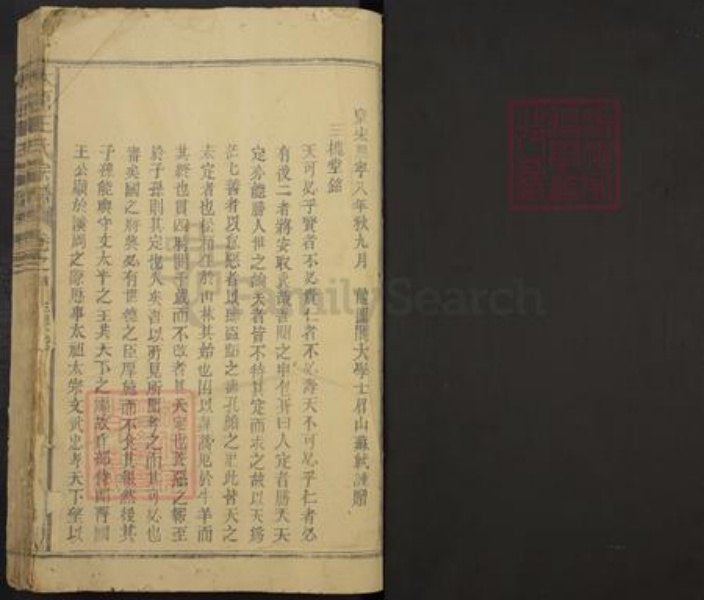 皇宋熙寧八年秋九月　龍圖閣大學士眉山蘇軾謹贈
三槐堂銘
天可必乎賢者不必貴仁者不必壽天不可必乎仁者必
有後二者將安取衷哉吾聞之申包胥曰人定者勝天天
定亦能勝人世之論天者皆不待其定而求之故以天為
茫茫善者以怠惡者以肆盜跖之壽孔顏之厄此皆天之
未定者也松栢生於山林其始也困以蓬蒿厄於牛羊而
其終也貫四時閱千歲而不改者其天定也善惡之報至
於子孫則其定也久矣吾以所見所聞考之而其可必也
審矣國之將興必有世德之臣厚施而不食其報然後其
子孫能與守文太平之主共天下之福故兵部侍郎晉國
王公顯於漢周之際歷事太祖太宗文武忠孝天下望以
FamilySearch